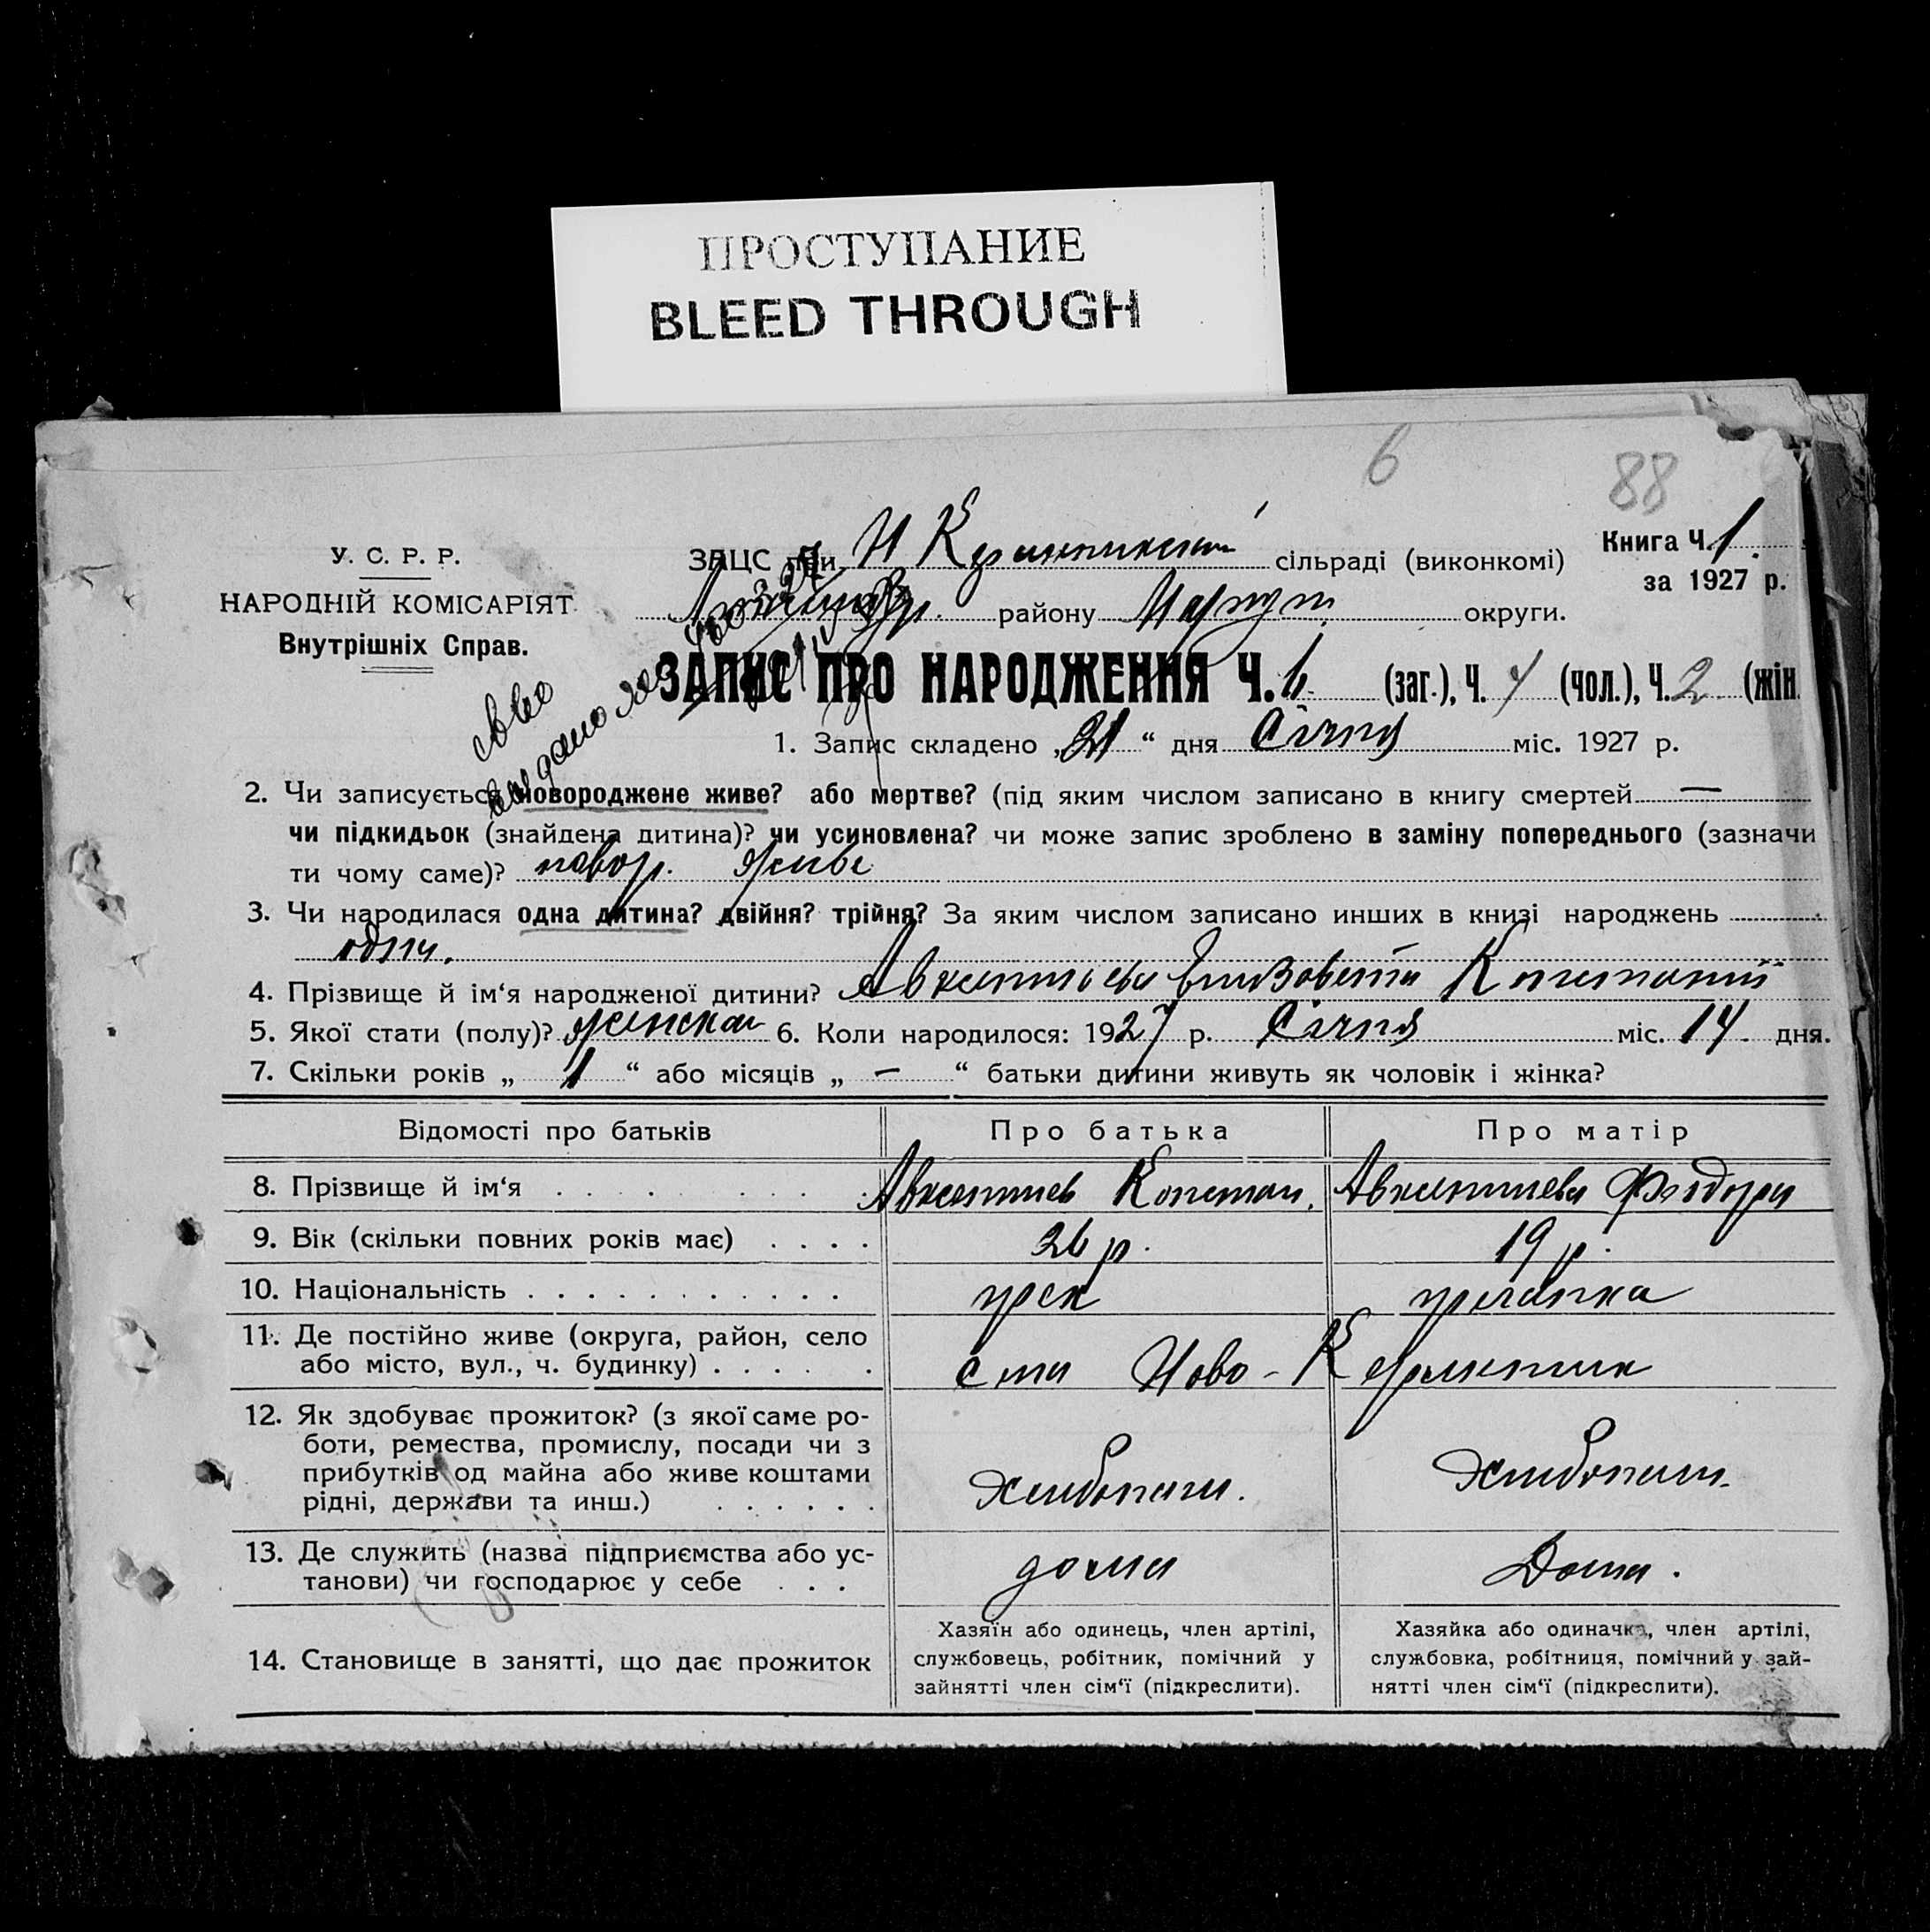 ПРОСТУПАНИЕ
BLEED THROUGH
6
88
У. С. Р. Р.
НАРОДНІЙ КОМІСАРІЯТ
Внутрішніх Справ.
ЗАЦС при Н сільраді (виконкомі)
району округи.
Книга Ч. 1
за 1927 р.
ЗАПИС ПРО НАРОДЖЕННЯ Ч. 6 (заг.), Ч. (чол.), Ч. 2 (жін.
1. Запис складено „21“ дня Січня міс. 1927 р.
2. Чи записується новороджене живе? або мертве? (під яким числом записано в книгу смертей —
чи підкидьок (знайдена дитина)? чи усиновлена? чи може запис зроблено в заміну попереднього (зазначи
ти чому саме)? новор. живе
3. Чи народилася одна дитина? двійня? трійня? За яким числом записано инших в книзі народжень
одна.
4. Прізвище й ім‘я народженої дитини? Авксентьева Елизавета
5. Якої стати (полу)? женская 6. Коли народилося: 1927 р. Січня міс. 14 дня.
7. Скільки років „ 1 “ або місяців „ — “ батьки дитини живуть як чоловік і жінка?
Відомості про батьків Про батька Про матір
8. Прізвище й ім‘я Авксентиев Констан. Авксентиева Феодора
9. Вік (скільки повних років має) 26 р. 19 р.
10. Національність грек гречанка
11. Де постійно живе (округа, район, село
або місто, вул., ч. будинку) Ново-Керменчик
12. Як здобуває прожиток? (з якої саме ро-
боти, ремества, промислу, посади чи з
прибутків од майна або живе коштами
рідні, держави та инш.) Хлибопаш. Хлибопаш.
13. Де служить (назва підприємства або ус-
танови) чи господарює у себе дома Дома.
14. Становище в занятті, що дає прожиток
Хазяїн або одинець, член артілі,
службовець, робітник, помічний у
зайнятті член сім‘ї (підкреслити).
Хазяйка або одиначка, член артілі,
службовка, робітниця, помічний у зай-
нятті член сім‘ї (підкреслити).